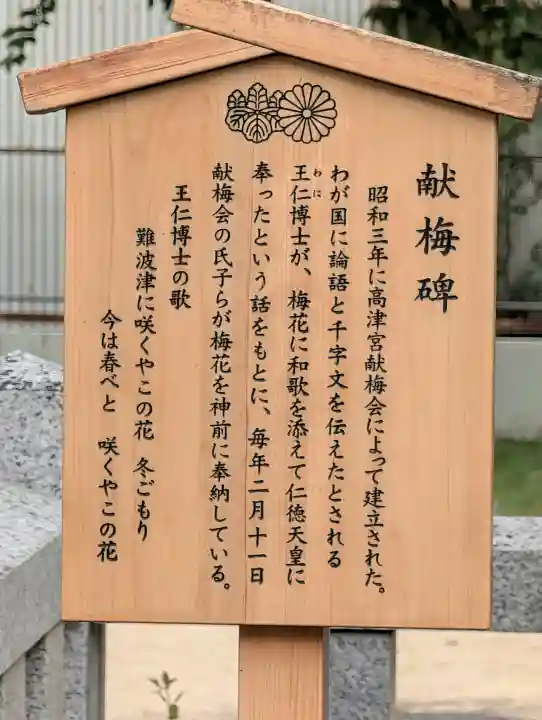 献梅碑
昭和三年に高津宮献梅会によって建立された。
わが国に論語と千字文を伝えたとされる
王仁博士が、梅花に和歌を添えて仁徳天皇に
わに
奉ったという話をもとに、毎年二月十一日
献梅会の氏子らが梅花を神前に奉納している。
王仁博士の歌
難波津に咲くやこの花 冬ごもり
今は春べと 咲くやこの花